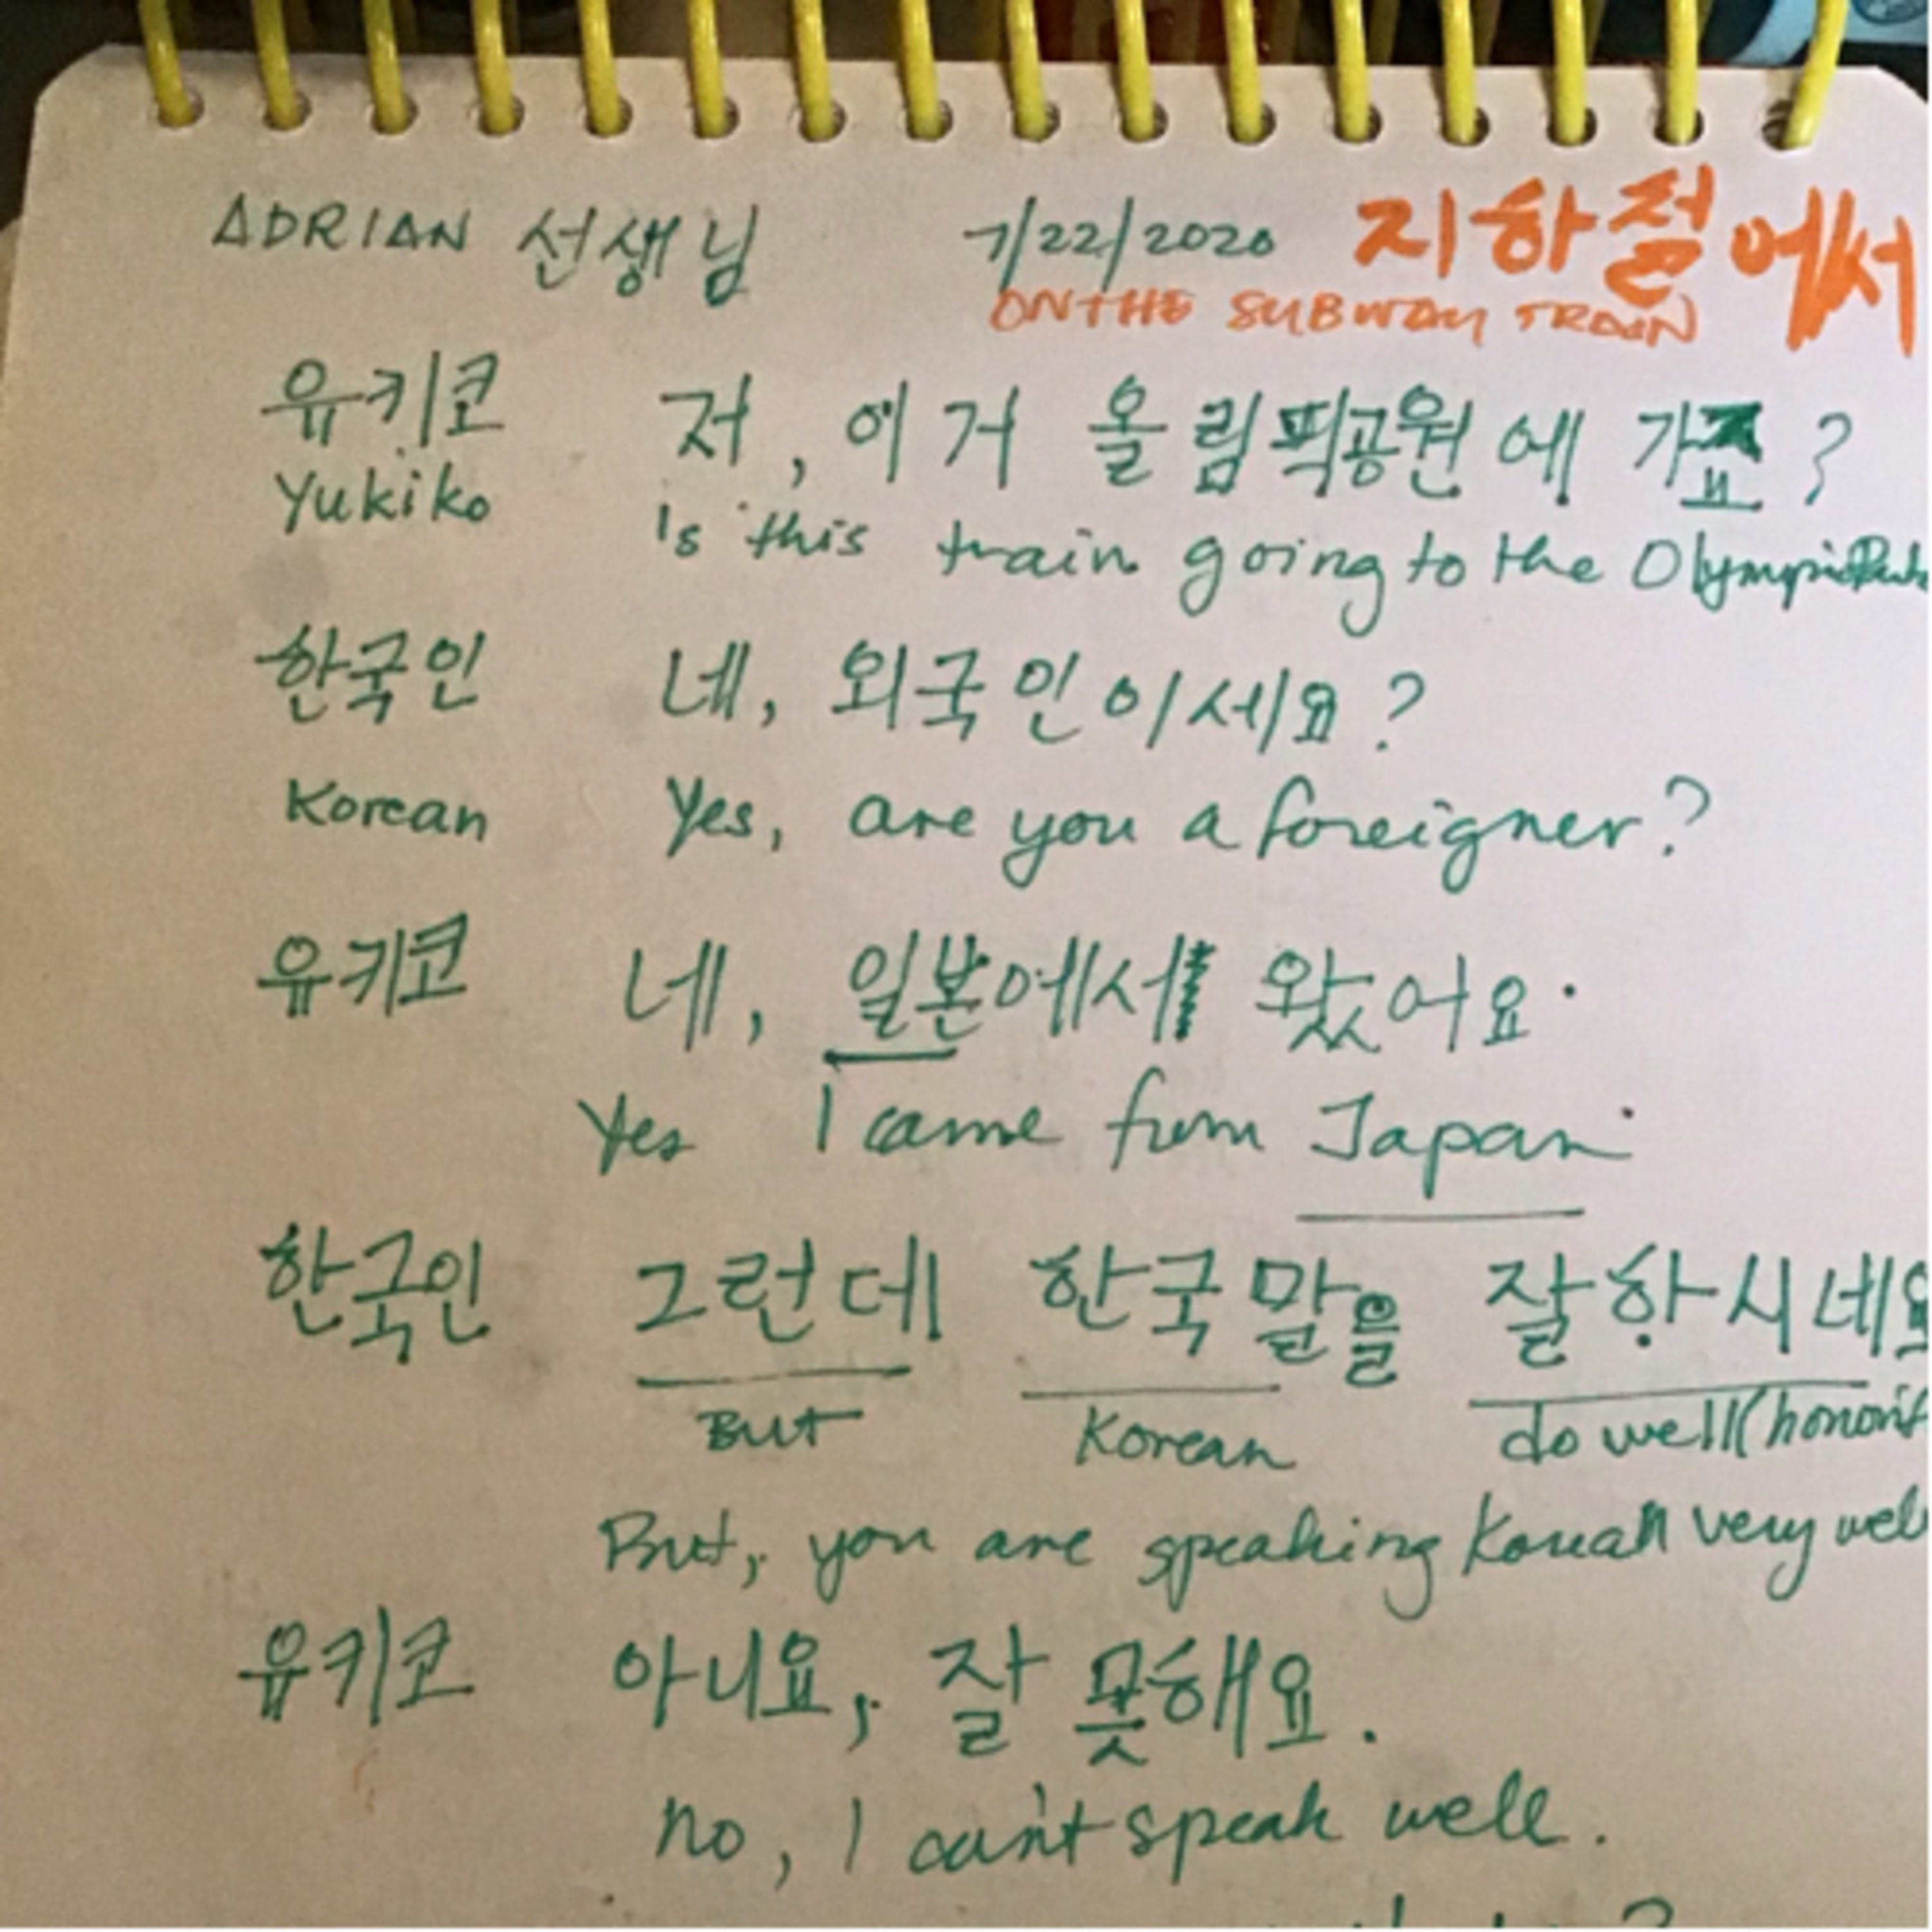 ADRIAN 선생님 7/22/2020 지하철에서
ON THE SUBWAY TRAIN
유키코 저, 이거 올림픽공원에 가요?
Yukiko Is this train going to the Olympic
한국인 네, 외국인이세요?
Korean Yes, are you a foreigner?
유키코 네, 일본에서 왔어요.
Yes I came from Japan.
한국인 그런데 한국말을 잘하시네요
But Korean do well (honorif
But, you are speaking Korean very wel
유키코 아니요, 잘 못해요.
No, I can't speak well.